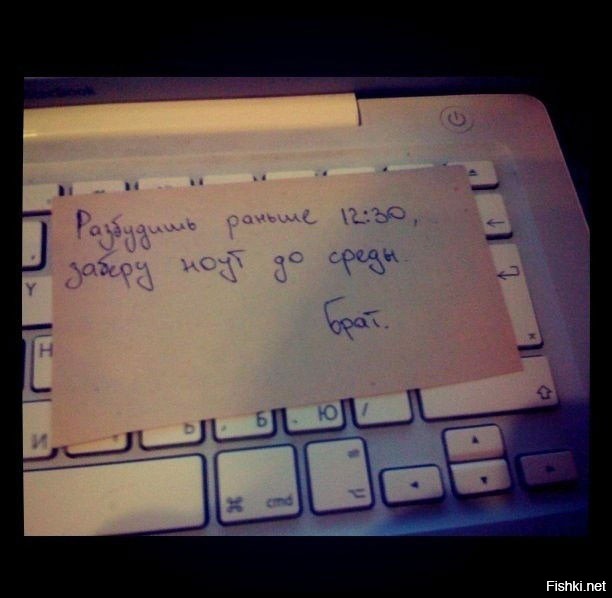 Macbook
Разбудишь раньше 12:30,
заберу ноут до среды.
Брат.
Y
Н
И
Ь
Б
Ю
/
⌘ cmd
⌥
Fishki.net